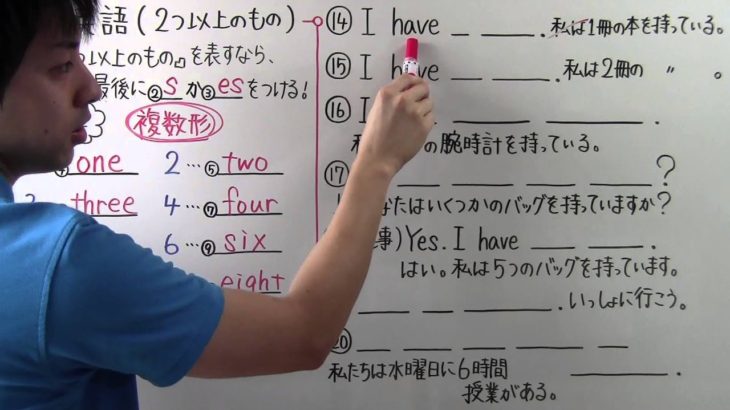 語(2つ以上のもの)
つ以上のもの』を表すなら、
最後に②sか③esをつける!
複数形
one
2…⑤two
three
4…⑦four
6…⑨six
eight
⑭ I have _ ___. 私は1冊の本を持っている。
⑮ I have _ ___. 私は2冊の 〃 。
⑯ I ___ ___ ___.
の腕時計を持っている。
⑰ ___ ___ ___ ___?
なたはいくつかのバッグを持っていますか?
)Yes. I have ___ ___.
はい。私は5つのバッグを持っています。
___ ___ ___. いっしょに行こう。
⑳ ___ ___ ___ ___ ___
私たちは水曜日に6時間 ___.
授業がある。